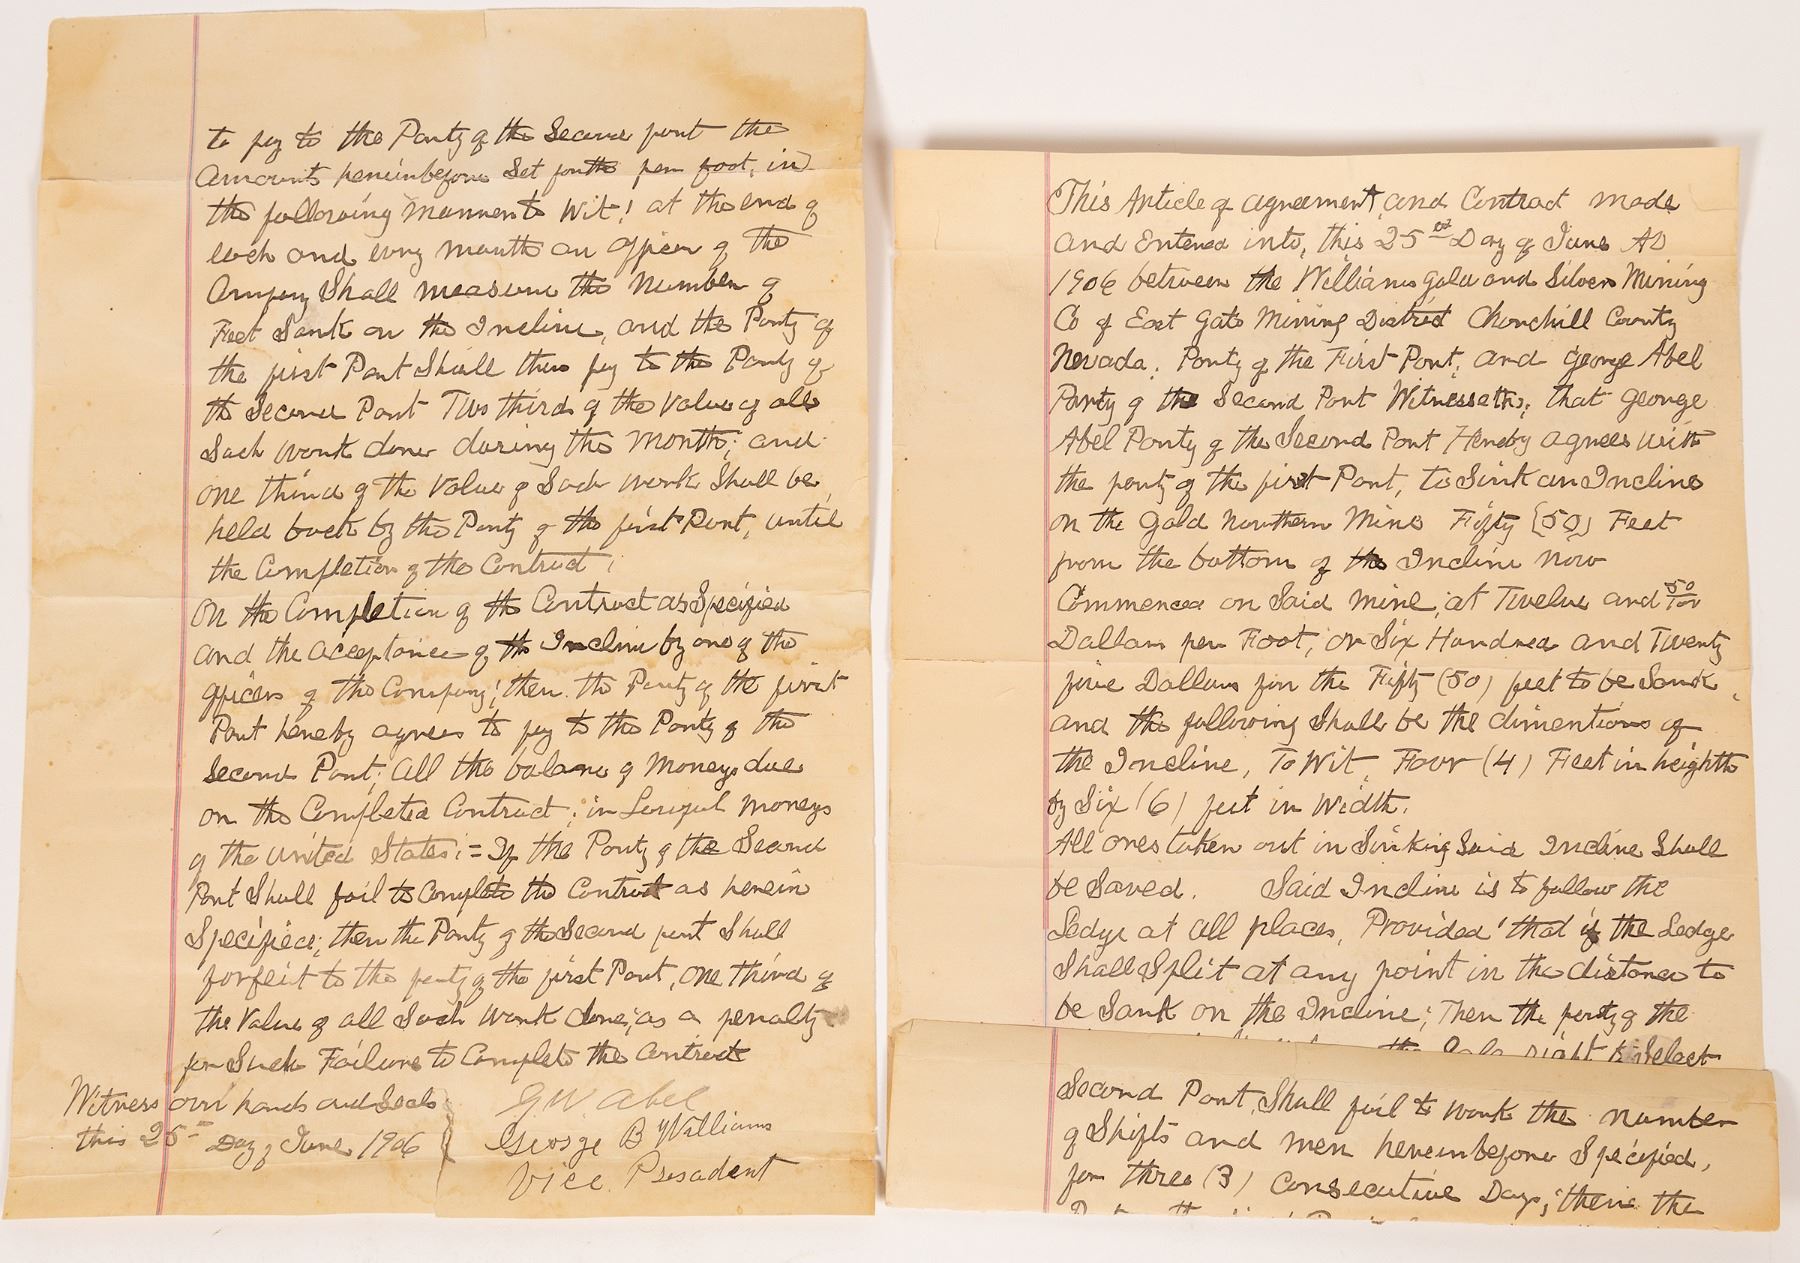 to pay to the Party of the Second part the
Amounts hereinbefore Set forth per foot, in
the following manner to Wit! at the end of
each and every month an officer of the
Company Shall measure the Number of
Feet Sank on the Incline, and the Party of
the first Part Shall then pay to the Party of
the Second Part Two third of the Value of all
Such work done during the Month; and
one third of the Value of Such work Shall be
held back by the Party of the first Part, until
the Completion of the Contract;
On the Completion of the Contract as Specified
and the acceptance of the Incline by one of the
officers of the Company; then the Party of the first
Part hereby agrees to pay to the Party of the
Second Part; All the balance of Moneys due
on the Completed Contract; in Lawful moneys
of the United States; = If the Party of the Second
Part Shall fail to Complete the Contract as herein
Specified; then the Party of the Second part Shall
forfeit to the party of the first Part, one third of
the Value of all Such Work done; as a penalty
for Such Failure to Complete the Contract
Witness our hands and Seals
this 25th Day of June 1906
G W. Abel
George B Williams
Vice. Presadent
This Article of agreement and Contract made
and Entered into, this 25th Day of June AD
1906 between the Williams Gold and Silver Mining
Co of East Gate Mining District Churchill County
Nevada. Party of the First Part. and George Abel
Party of the Second Part Witnesseth; that George
Abel Party of the Second Part Hereby agrees with
the party of the first Part, to Sink an Incline
on the Gold Northern Mine Fifty (50) Feet
from the bottom of the Incline Now
Commenced on Said Mine; at Twelve and 50/100
Dollars per Foot; or Six Hundred and Twenty
five Dollars for the Fifty (50) feet to be Sank
and the following Shall be the dimentions of
the Incline, To Wit, Four (4) Feet in heighth
by Six (6) feet in Width.
All ores taken out in Sinking Said Incline Shall
be Saved. Said Incline is to follow the
Ledge at all places, Provided that if the Ledge
Shall Split at any point in the distance to
be Sank on the Incline; Then the party of the
the Sole right to Select
Second Part Shall fail to work the number
of Shifts and men hereinbefore Specified,
for three (3) Consecutive Days; then the